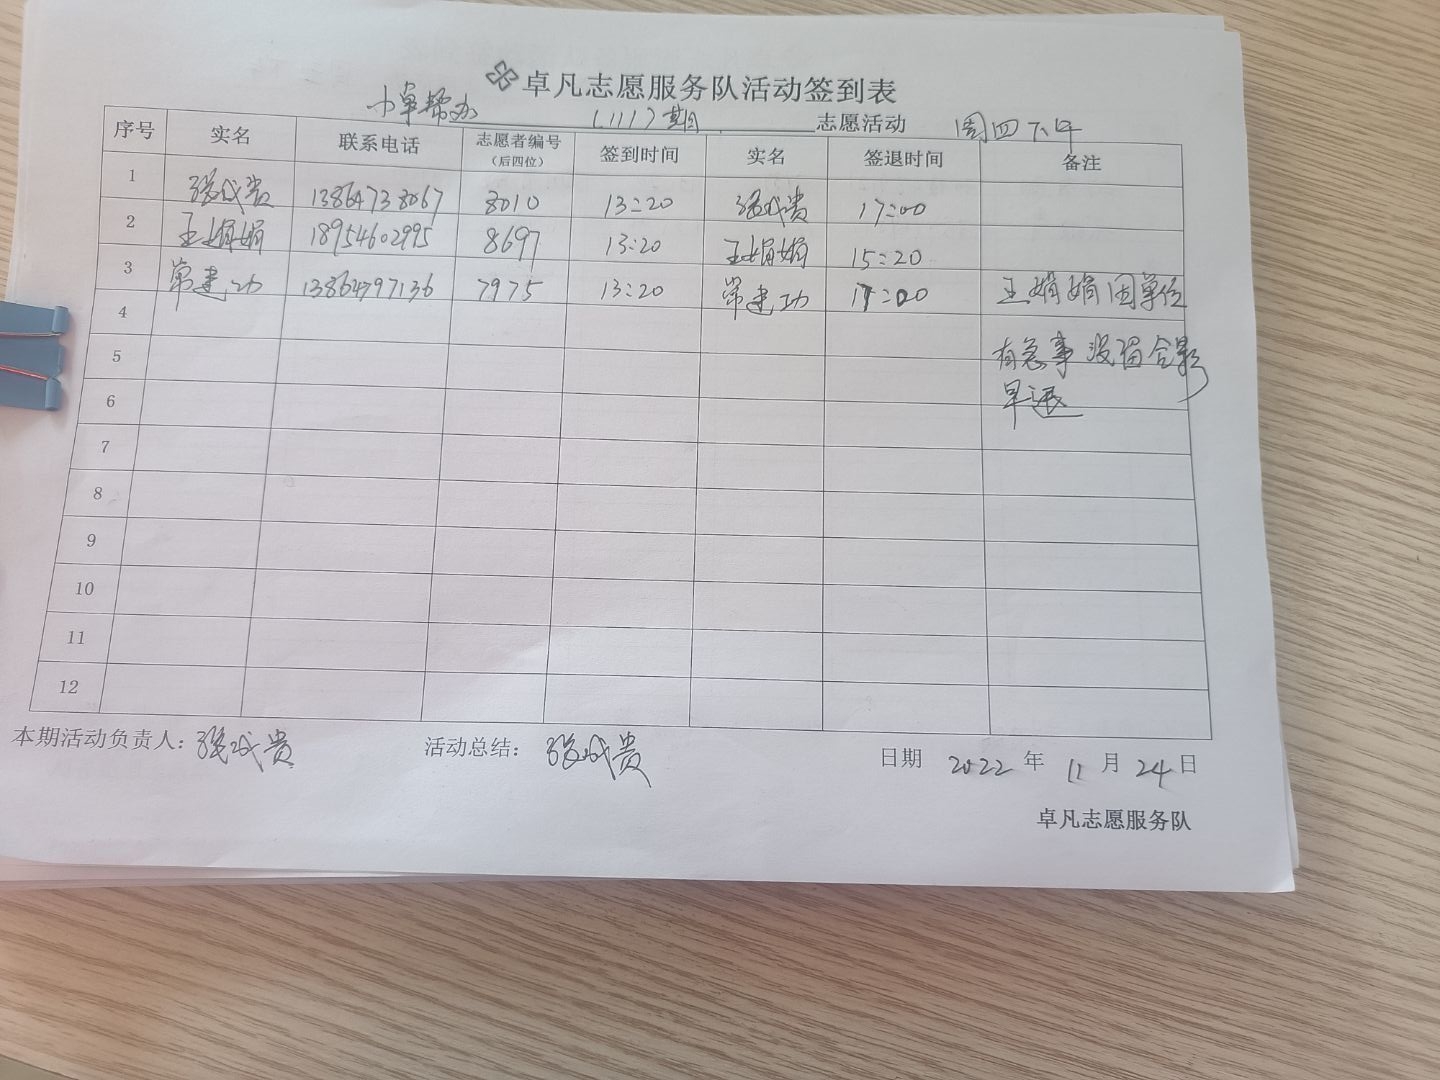 卓凡志愿服务队活动签到表
小卓帮办 (111)期 志愿活动 周四下午
序号 实名 联系电话 志愿者编号(后四位) 签到时间 实名 签退时间 备注
1 张成贵 13864738067 8010 13:20 张成贵 17:00
2 王娟娟 18954602995 8697 13:20 王娟娟 15:20
3 常建功 13864797136 7975 13:20 常建功 17:00 王娟娟因单位
4
5 有急事没留合影
6 早退
7
8
9
10
11
12
本期活动负责人: 张成贵 活动总结: 张成贵 日期 2022 年 11 月 24 日
卓凡志愿服务队